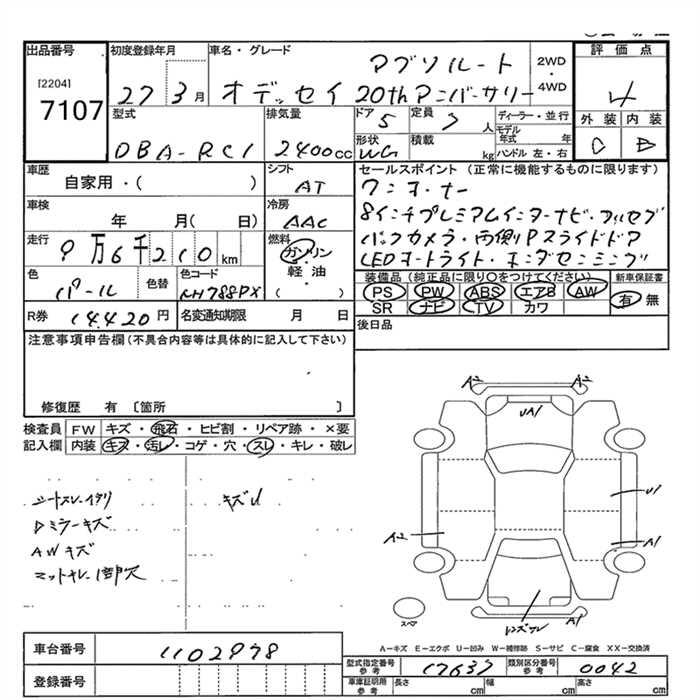 出品番号
[2204]
7107
初度登録年月
27 3月
車名・グレード
オデッセイ
アブソルート
20thアニバーサリー
2WD
・
4WD
評価点
4
外装 内装
C B
型式
DBA-RC1
排気量
2400cc
ドア
5
定員
7人
ディーラー・並行
モデル年式 年
形状
WG
積載 kg
ハンドル 左・右
車歴
自家用・( )
シフト
AT
車検
年 月( 日)
冷房
AAC
走行
9万6千210km
燃料
ガソリン
・
軽油
・
( )
色
パール
色替
色コード
NH788PX
R券 14420円
名変通知期限 月 日
セールスポイント (正常に機能するものに限ります)
ワンオーナー
8インチプレミアムインターナビ・フルセグ
バックカメラ・両側Pスライドドア
LEDオートライト・ホンダセンシング
装備品(純正品に限り○をつけてください)
PS PW ABS エアB AW
SR ナビ TV カワ
新車保証書
有 無
後日品
注意事項申告欄(不具合内容等は具体的に記入して下さい)
修復歴 有 〔箇所 〕
検査員記入欄
FW キズ・飛石・ヒビ割・リペア跡・×要
内装 キズ・汚レ・コゲ・穴・スレ・キレ・破レ
シートスレ・イタリ
Dミラーキズ
AWキズ
キズU
A2 A2
UA1
U1
A2 A1
A1
スペア
A−キズ E−エクボ U−凹み W−補修跡 S−サビ C−腐食 XX−交換済
車台番号 1102978
登録番号
型式指定番号 参考 17637
類別区分番号 参考 0042
車庫証明用 参考 長さ cm 幅 cm 高さ cm